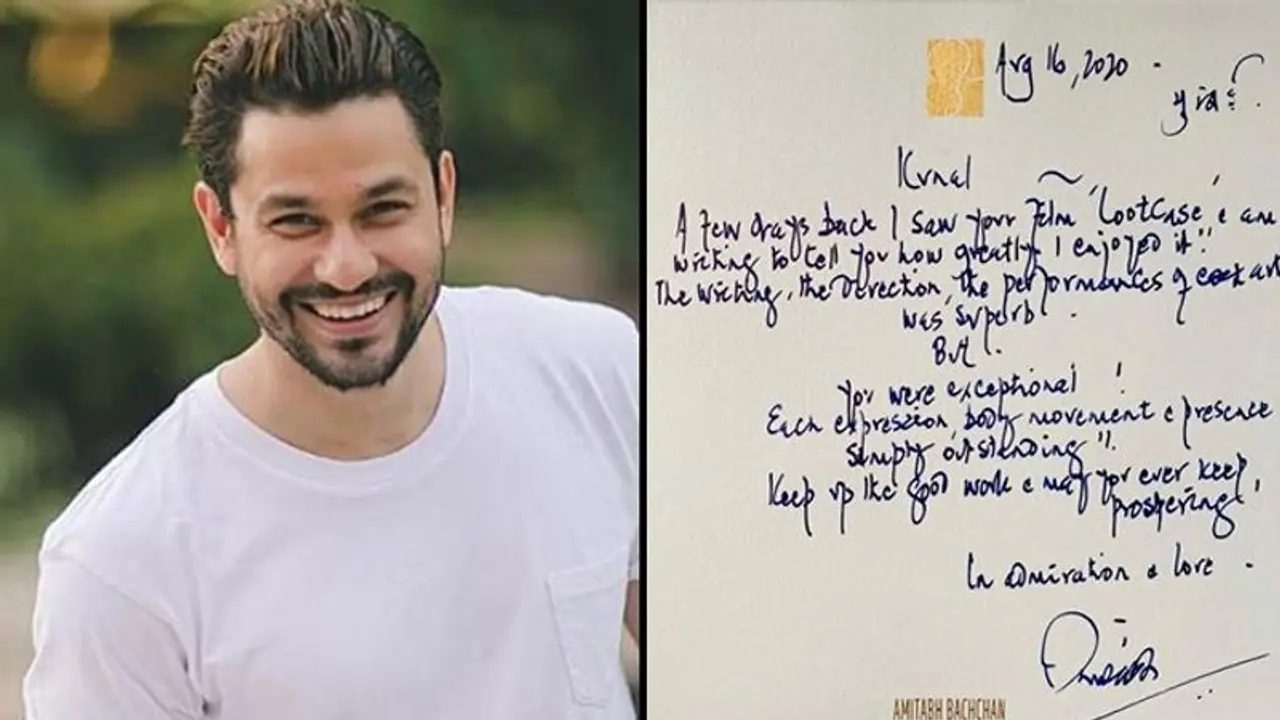 Aug 16, 2020
Kunal
A few days back I saw your film 'Lootcase' & am
writing to tell you how greatly I enjoyed it!!
The writing, the direction, the performances of each art
was superb.
But..
You were exceptional!
Each expression, body movement & presence
simply outstanding!!
Keep up the good work & may you ever keep
prospering!
In admiration & love.
AMITABH BACHCHAN